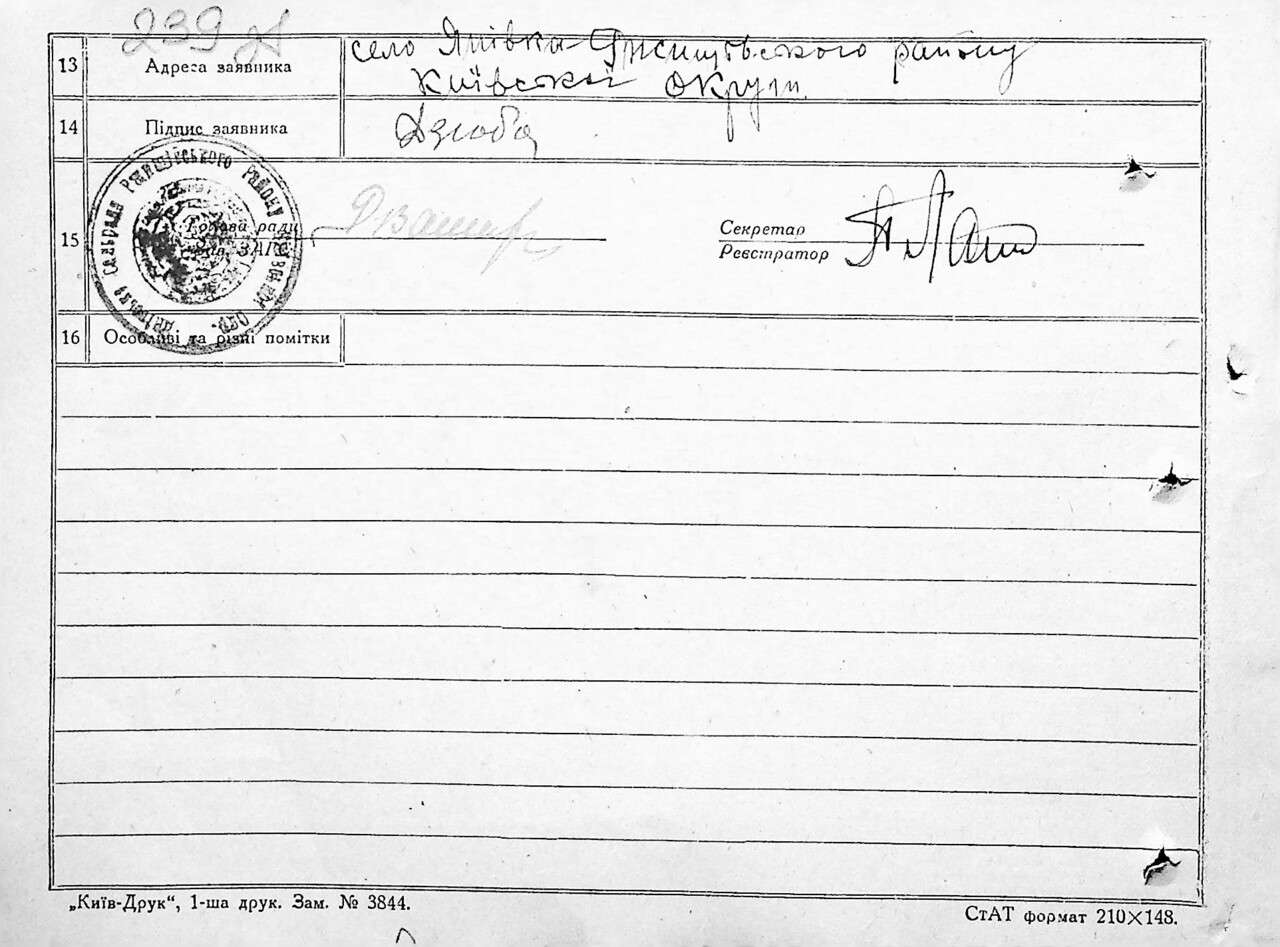 239
13 Адреса заявника село Япівка Ржищівського району
Київської Округи
14 Підпис заявника Дзюба
сельрада Ржищівського Району Київської Окр.
15 Голова ради
Зав. ЗАГС
Секретар
Реєстратор
16 Особливі та різні помітки
„Київ-Друк“, 1-ша друк. Зам. № 3844.
СтАТ формат 210×148.